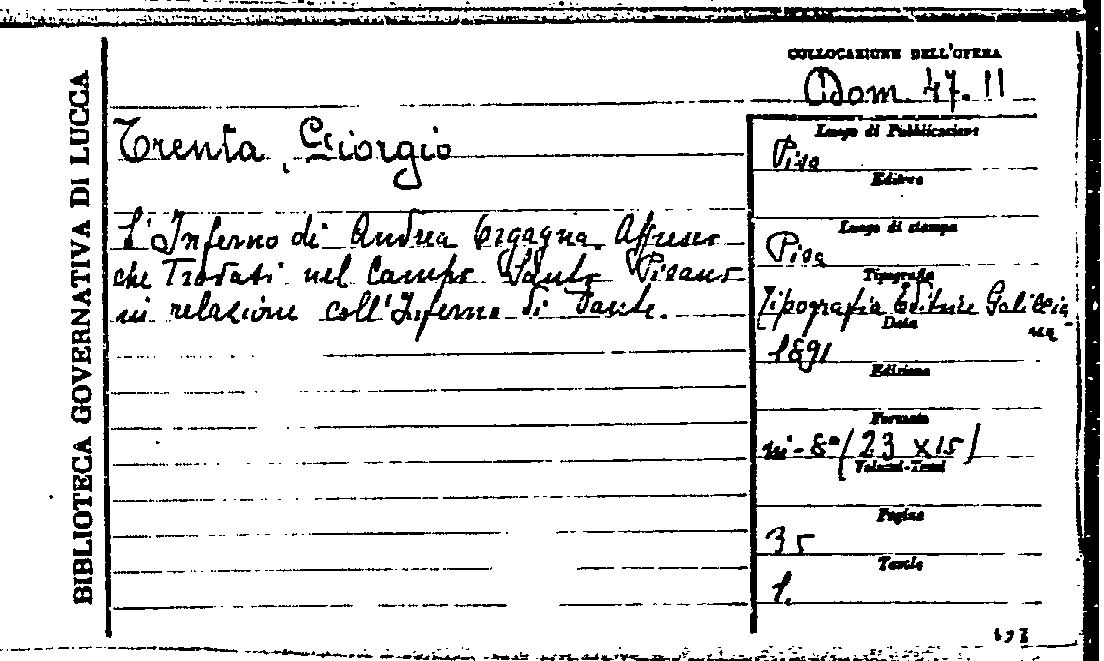 BIBLIOTECA GOVERNATIVA DI LUCCA
COLLOCAZIONE DELL'OPERA
Dom. 47. 11
Trenta, Giorgio
L'Inferno di Andrea Orgagna. Affresco
che Trovasi nel Campo Santo Pisano
in relazione coll'Inferno di Dante.
Luogo di Pubblicazione
Pisa
Editore
Luogo di stampa
Pisa
Tipografia
Tipografia Editrice Galileia
na
Data
1891
Edizione
Formato
in-8° (23 x 15)
Volumi-Tomi
Pagine
35
Tavole
1.